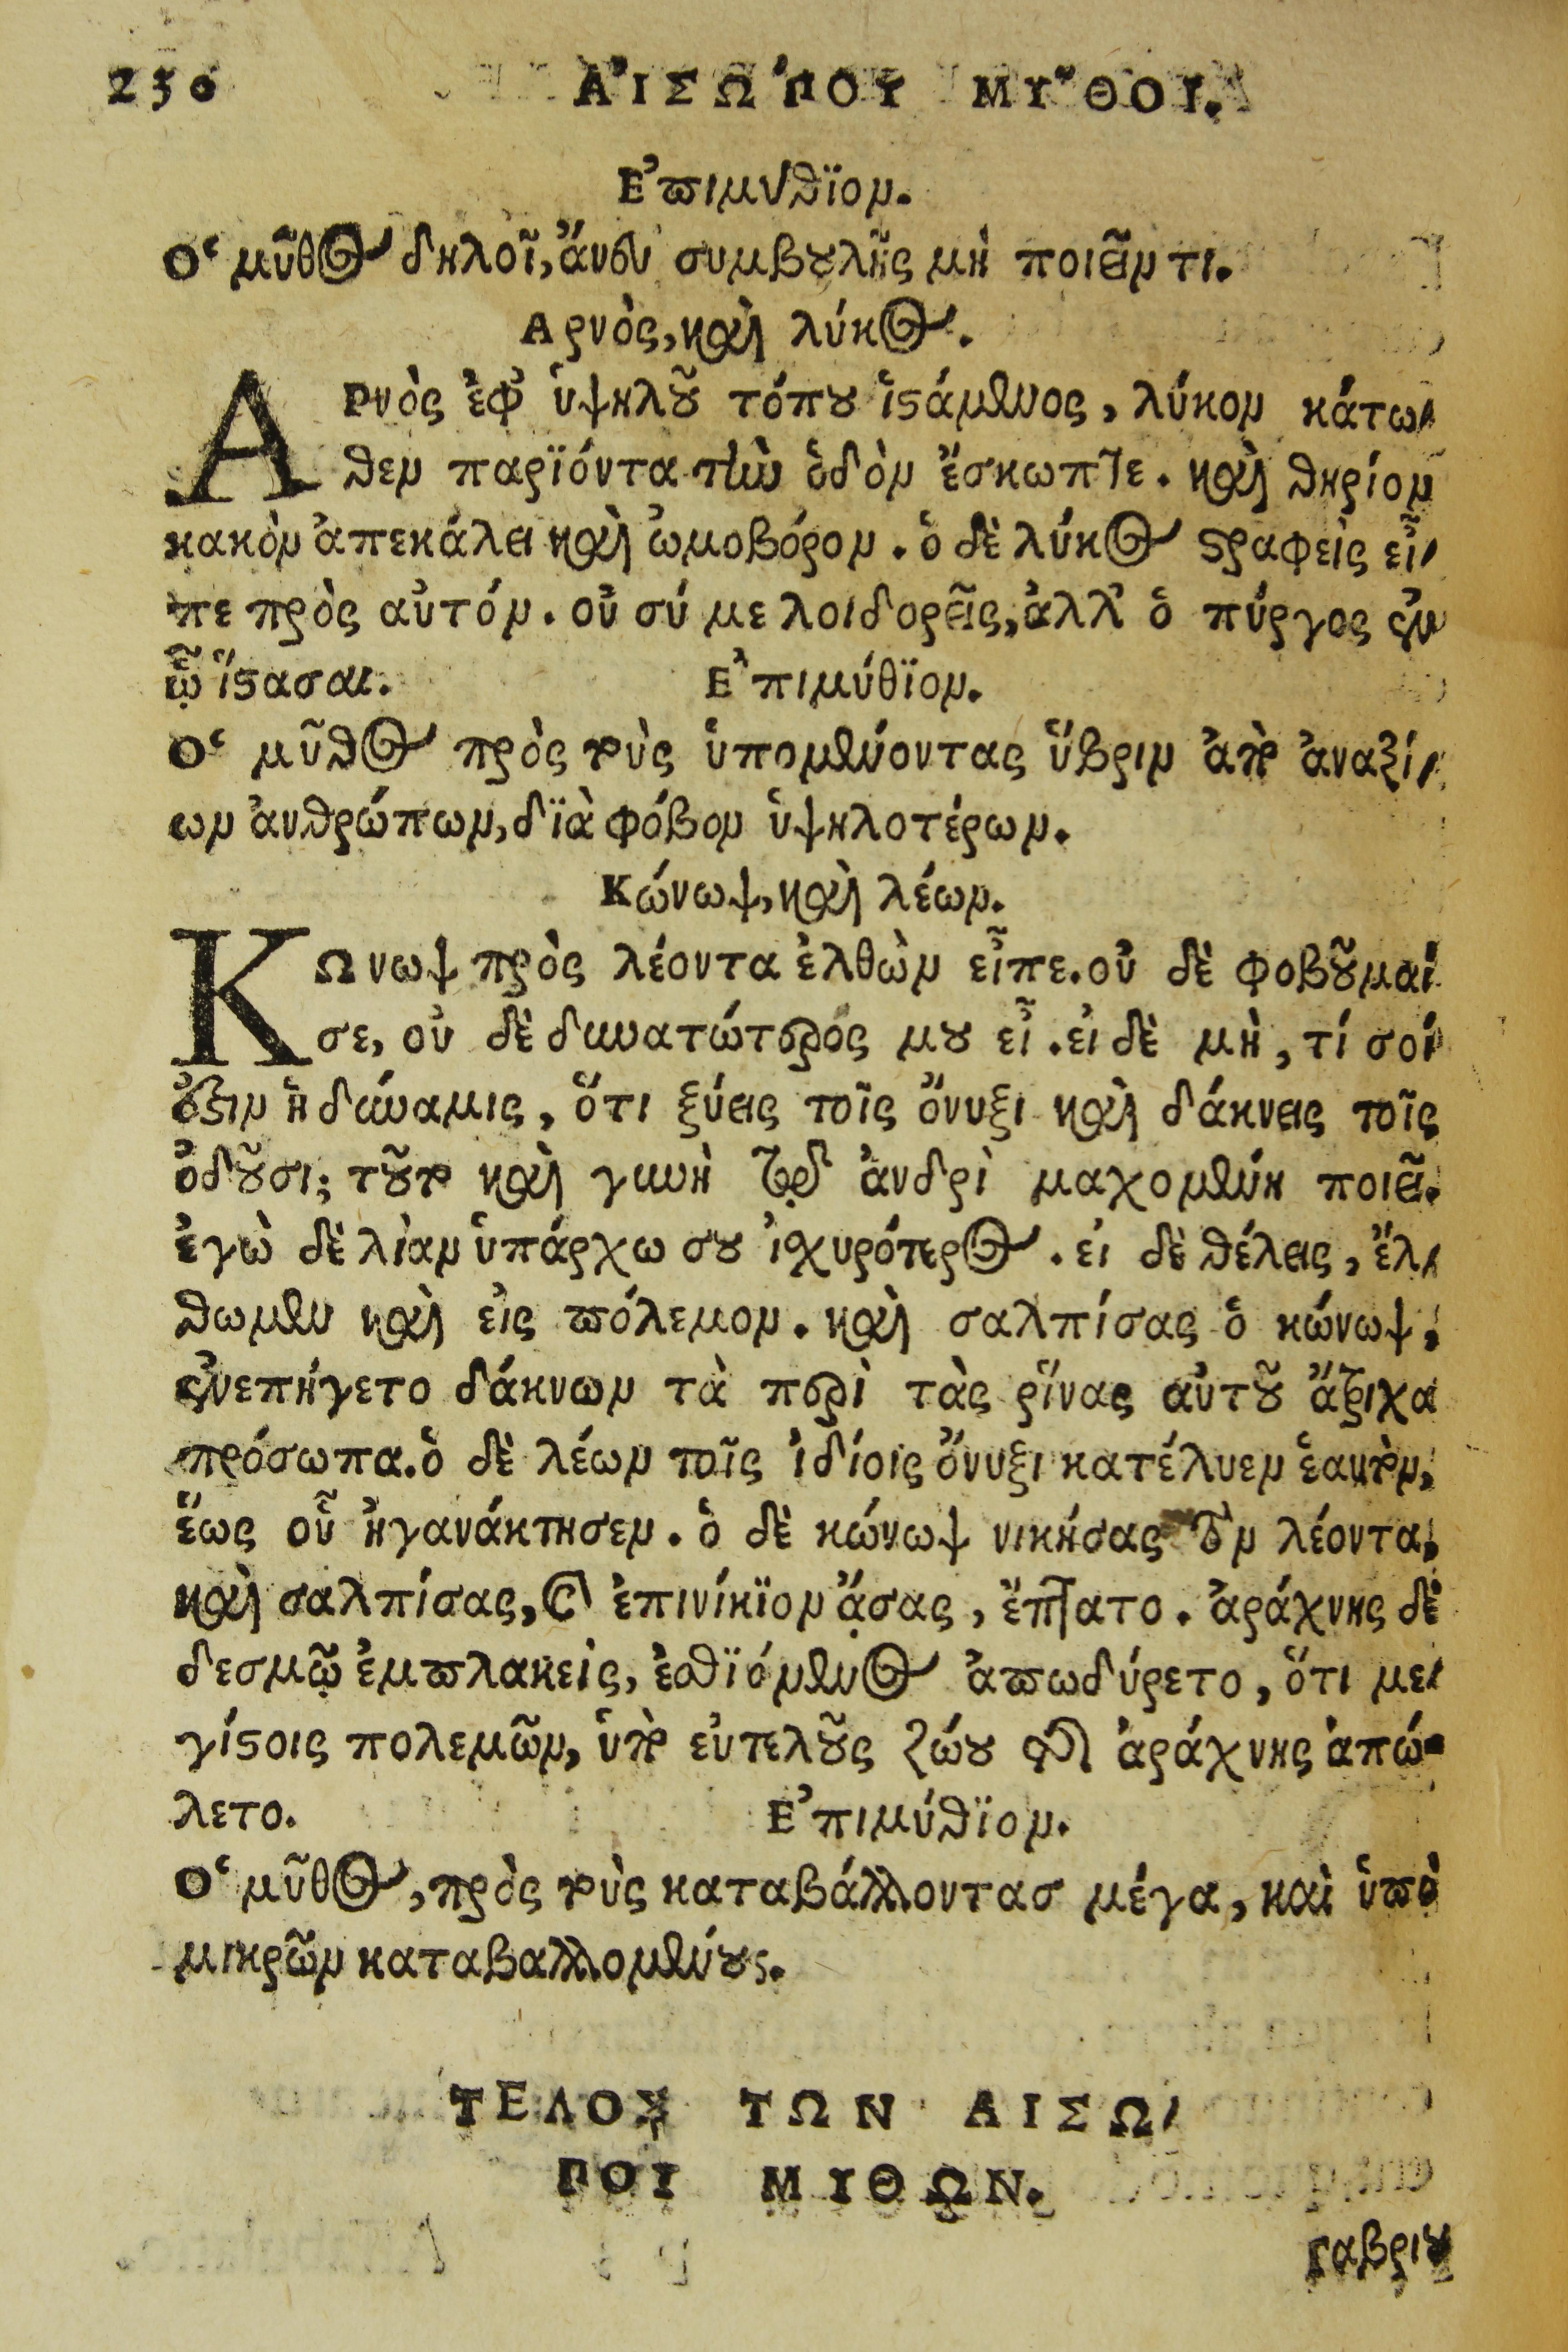 230 ΑἸΣΩΠΟΥ ΜΥ͂ΘΟΙ.
Ἐπιμύθϊον.
Ὁ μῦθος δηλοῖ, ἄνευ συμβουλῆς μὴ ποιεῖν τι.
Αρνὸς, καὶ λύκος.
ΑΡνὸς ἐφ' ὑψηλοῦ τόπου ἱστάμενος, λύκον κάτω-
θεν παριϊόντα τὴν ὁδὸν ἔσκωπτε. καὶ θηρίον
κακὸν ἀπεκάλει καὶ ὠμοβόρον. ὁ δὲ λύκος στραφεὶς εἶ-
πε πρὸς αὐτόν. οὐ σύ με λοιδορεῖς, ἀλλ' ὁ πύργος ἐν
ᾧ ἵστασαι. Ἐπιμύθϊον.
Ὁ μῦθος πρὸς τοὺς ὑπομένοντας ὕβριν ἀπὸ ἀναξί-
ων ἀνθρώπων, δϊὰ φόβον ὑψηλοτέρων.
Κώνωψ, καὶ λέων.
ΚΩνωψ πρὸς λέοντα ἐλθὼν εἶπε. οὐ δὲ φοβοῦμαί
σε, οὐ δὲ δυνατώτερός μου εἶ. εἰ δὲ μὴ, τί σοί
ἐστιν ἡ δύναμις, ὅτι ξύεις τοῖς ὄνυξι καὶ δάκνεις τοῖς
ὀδοῦσι; τοῦτο καὶ γυνὴ τῷ ἀνδρὶ μαχομένη ποιεῖ.
ἐγὼ δὲ λίαν ὑπάρχω σου ἰσχυρότερος. εἰ δὲ θέλεις, ἔλ-
θωμεν καὶ εἰς πόλεμον. καὶ σαλπίσας ὁ κώνωψ,
ἐνεπήγετο δάκνων τὰ περὶ τὰς ῥῖνας αὐτοῦ ἄτριχα
πρόσωπα. ὁ δὲ λέων τοῖς ἰδίοις ὄνυξι κατέλυεν ἑαυτὸν,
ἕως οὗ ἠγανάκτησεν. ὁ δὲ κώνωψ νικήσας τὸν λέοντα,
καὶ σαλπίσας, καὶ ἐπινίκϊον ᾄσας, ἔπτατο. ἀράχνης δὲ
δεσμῷ ἐμπλακεὶς, ἐσθϊόμενος ἀπωδύρετο, ὅτι με-
γίστοις πολεμῶν, ὑπὸ εὐτελοῦς ζώου τῆς ἀράχνης ἀπώ-
λετο. Ἐπιμύθϊον.
Ὁ μῦθος, πρὸς τοὺς καταβάλλοντασ μέγα, καὶ ὑπὸ
μικρῶν καταβαλλομένους.
ΤΕΛΟΣ ΤΩΝ ΑΙΣΩ-
ΠΟΥ ΜΥΘΩΝ.
Γαβριου